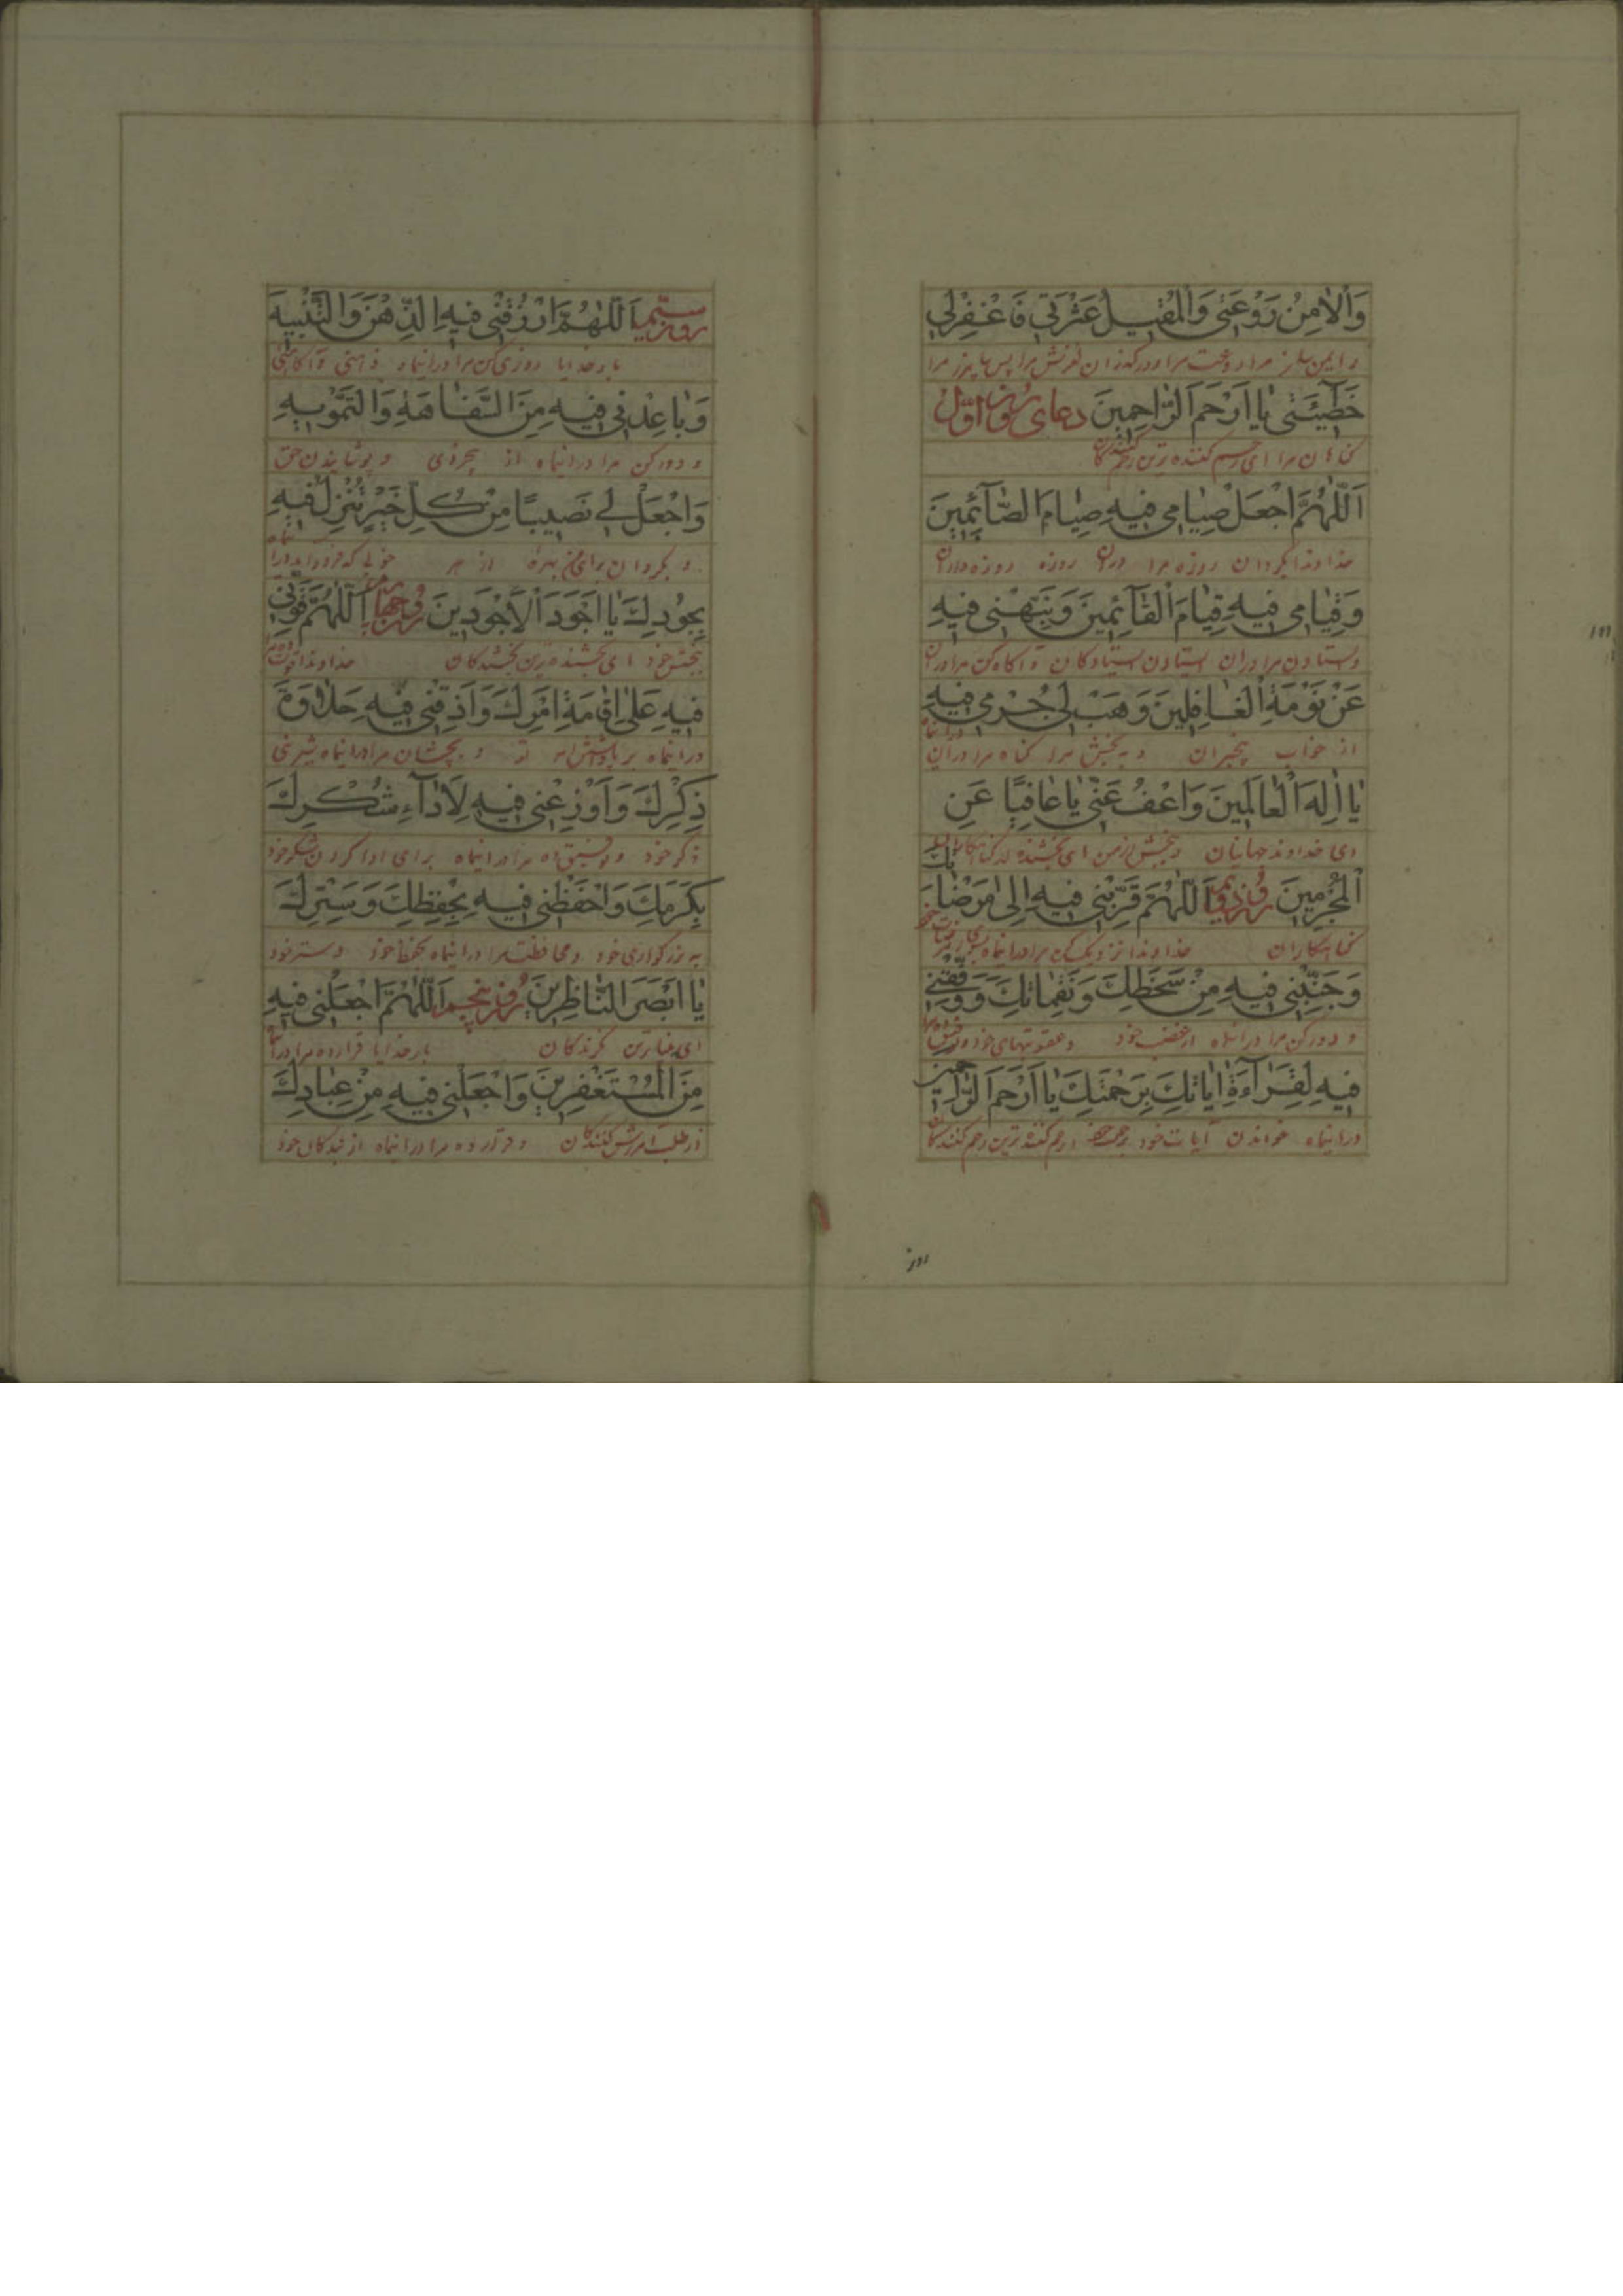 وَالْاٰمِنُ رَوْعَتى وَالْمُقيلُ عَثْرَتى فَاغْفِرْلى
را ایمن ساز مرا و درگذران لغزش مرا پس بیامرز مرا
خَطيئَتى يٰا اَرْحَمَ الرّٰاحِمينَ دعای روز اوّل
گناهان مرا ای رحم کننده ترین رحم کنندگان
اَللّٰهُمَّ اجْعَلْ صِيٰامى فيهِ صِيٰامَ الصّٰآئِمينَ
خداوندا بگردان روزه مرا در آن روزه روزه داران
وَقِيٰامى فيهِ قِيٰامَ الْقٰآئِمينَ وَنَبِّهْنى فيهِ
وستادن مرا در ان استادن استادکان و آکاه کن مرا در آن
عَنْ نَوْمَةِ الْغٰافِلينَ وَهَبْ لى جُرْمى فيهِ
از خواب بیخبران و ببخش مرا کناه مرا در آن
يٰا اِلٰهَ الْعٰالَمينَ وَاعْفُ عَنّى يٰا عٰافِيًا عَنِ
ای خداوند جهانیان و ببخش از من ای بخشنده از
الْمُجْرِمينَ روز دویم اَللّٰهُمَّ قَرِّبْنى فيهِ اِلىٰ مَرْضٰاتِكَ
کناهکاران خداوندا نزدیک کن مرا در اینماه بسوی
وَجَنِّبْنى فيهِ مِنْ سَخَطِكَ وَنَقِمٰاتِكَ وَوَفِّقْنى
و دور کن مرا در اینماه از غضب خود و عقوبتهای خود
فيهِ لِقِرٰآءَةِ اٰيٰاتِكَ بِرَحْمَتِكَ يٰا اَرْحَمَ الرّٰاحِمينَ
در اینماه خواندن آیات خود برحمت ارحم کننده ترین رحم کنندکان
روز
روز سیّم اَللّٰهُمَّ ارْزُقْنى فيهِ الذِّهْنَ وَالتَّنْبيهَ
بار خدایا روزی کن مرا در اینماه ذهنی و آکاهی
وَبٰاعِدْنى فيهِ مِنَ السَّفٰاهَةِ وَالتَّمْويهِ
و دور کن مرا در اینماه از بیخردی و پوشانیدن حق
وَاجْعَلْ لى نَصيبًا مِنْ كُلِّ خَيْرٍ تُنْزِلُ فيهِ
و بکردان برای من بهره از هر خوبی که فرود آید در
بِجُودِكَ يٰا اَجْوَدَ الْاَجْوَدينَ روز چهارم اَللّٰهُمَّ قَوِّنى
ببخشش خود ای بخشنده ترین بخشندکان خداوندا قوت
فيهِ عَلىٰ اِقٰامَةِ اَمْرِكَ وَاَذِقْنى فيهِ حَلاٰوَةَ
در اینماه بر امر تو و بچشان مرا در اینماه شیرینی
ذِكْرِكَ وَاَوْزِعْنى فيهِ لِاَدٰآءِ شُكْرِكَ
ذکر خود و توفیق ده مرا در اینماه برای ادا کردن شکر خود
بِكَرَمِكَ وَاحْفَظْنى فيهِ بِحِفْظِكَ وَسَتْرِكَ
به بزرکواری خود و محافظت مرا در اینماه بحفظ خود و ستر خود
يٰا اَبْصَرَ النّٰاظِرينَ روز پنجم اَللّٰهُمَّ اجْعَلْنى فيهِ
ای بیناترین نکرندکان بار خدایا قرار ده مرا در
مِنَ الْمُسْتَغْفِرينَ وَاجْعَلْنى فيهِ مِنْ عِبٰادِكَ
از طلب آمرزش کنندکان و قرار ده مرا در اینماه از بندکان خود